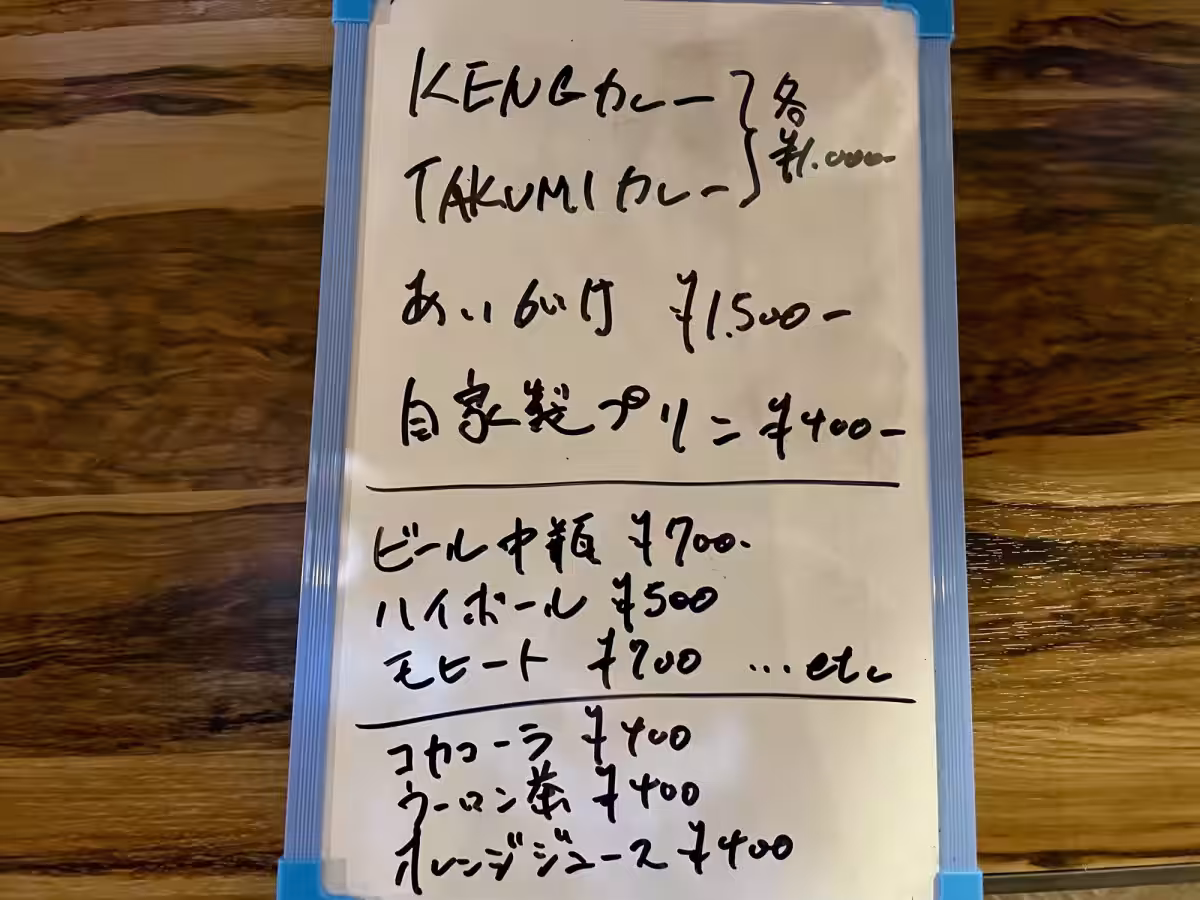 KENGカレー } 各
TAKUMIカレー } ¥1.000-
あいがけ ¥1.500-
自家製プリン ¥400-
ビール中瓶 ¥700-
ハイボール ¥500
モヒート ¥700 ...etc
コカコーラ ¥400
ウーロン茶 ¥400
オレンジジュース ¥400